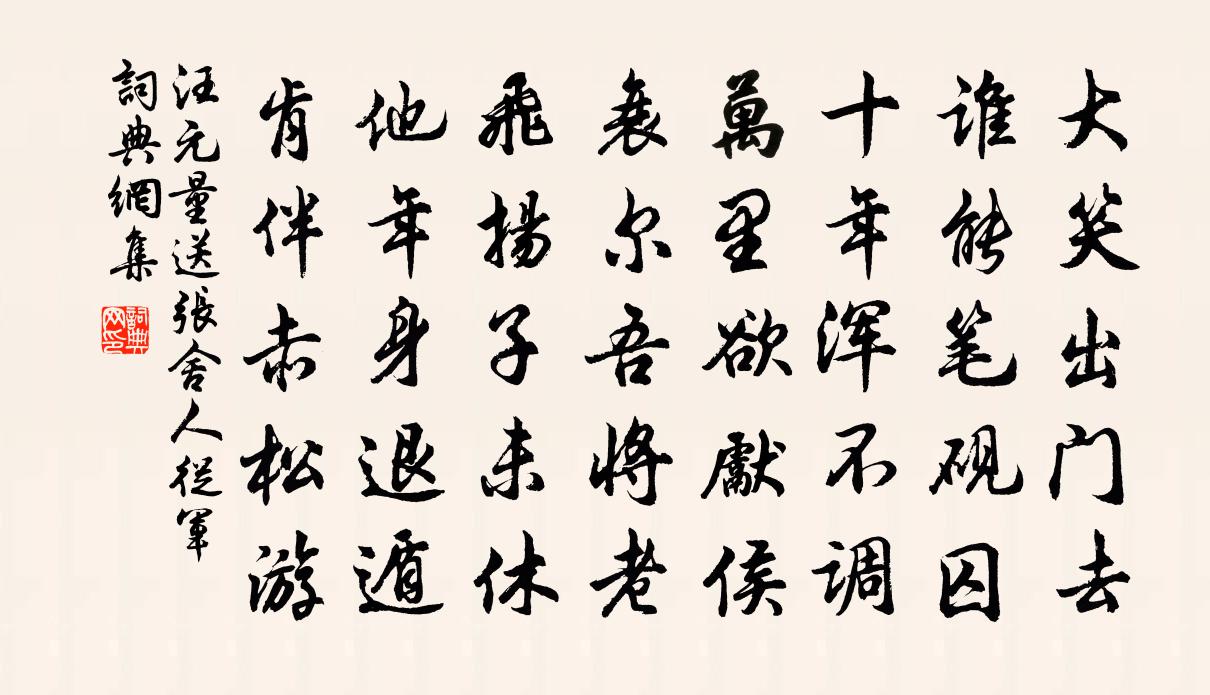 大笑出门去
谁能笔砚囚
十年浑不调
萬里欲獻侯
衰尔吾将老
飛揚子未休
他年身退遁
肯伴赤松游
汪元量送張舍人從軍
詞典網集
詞典网印